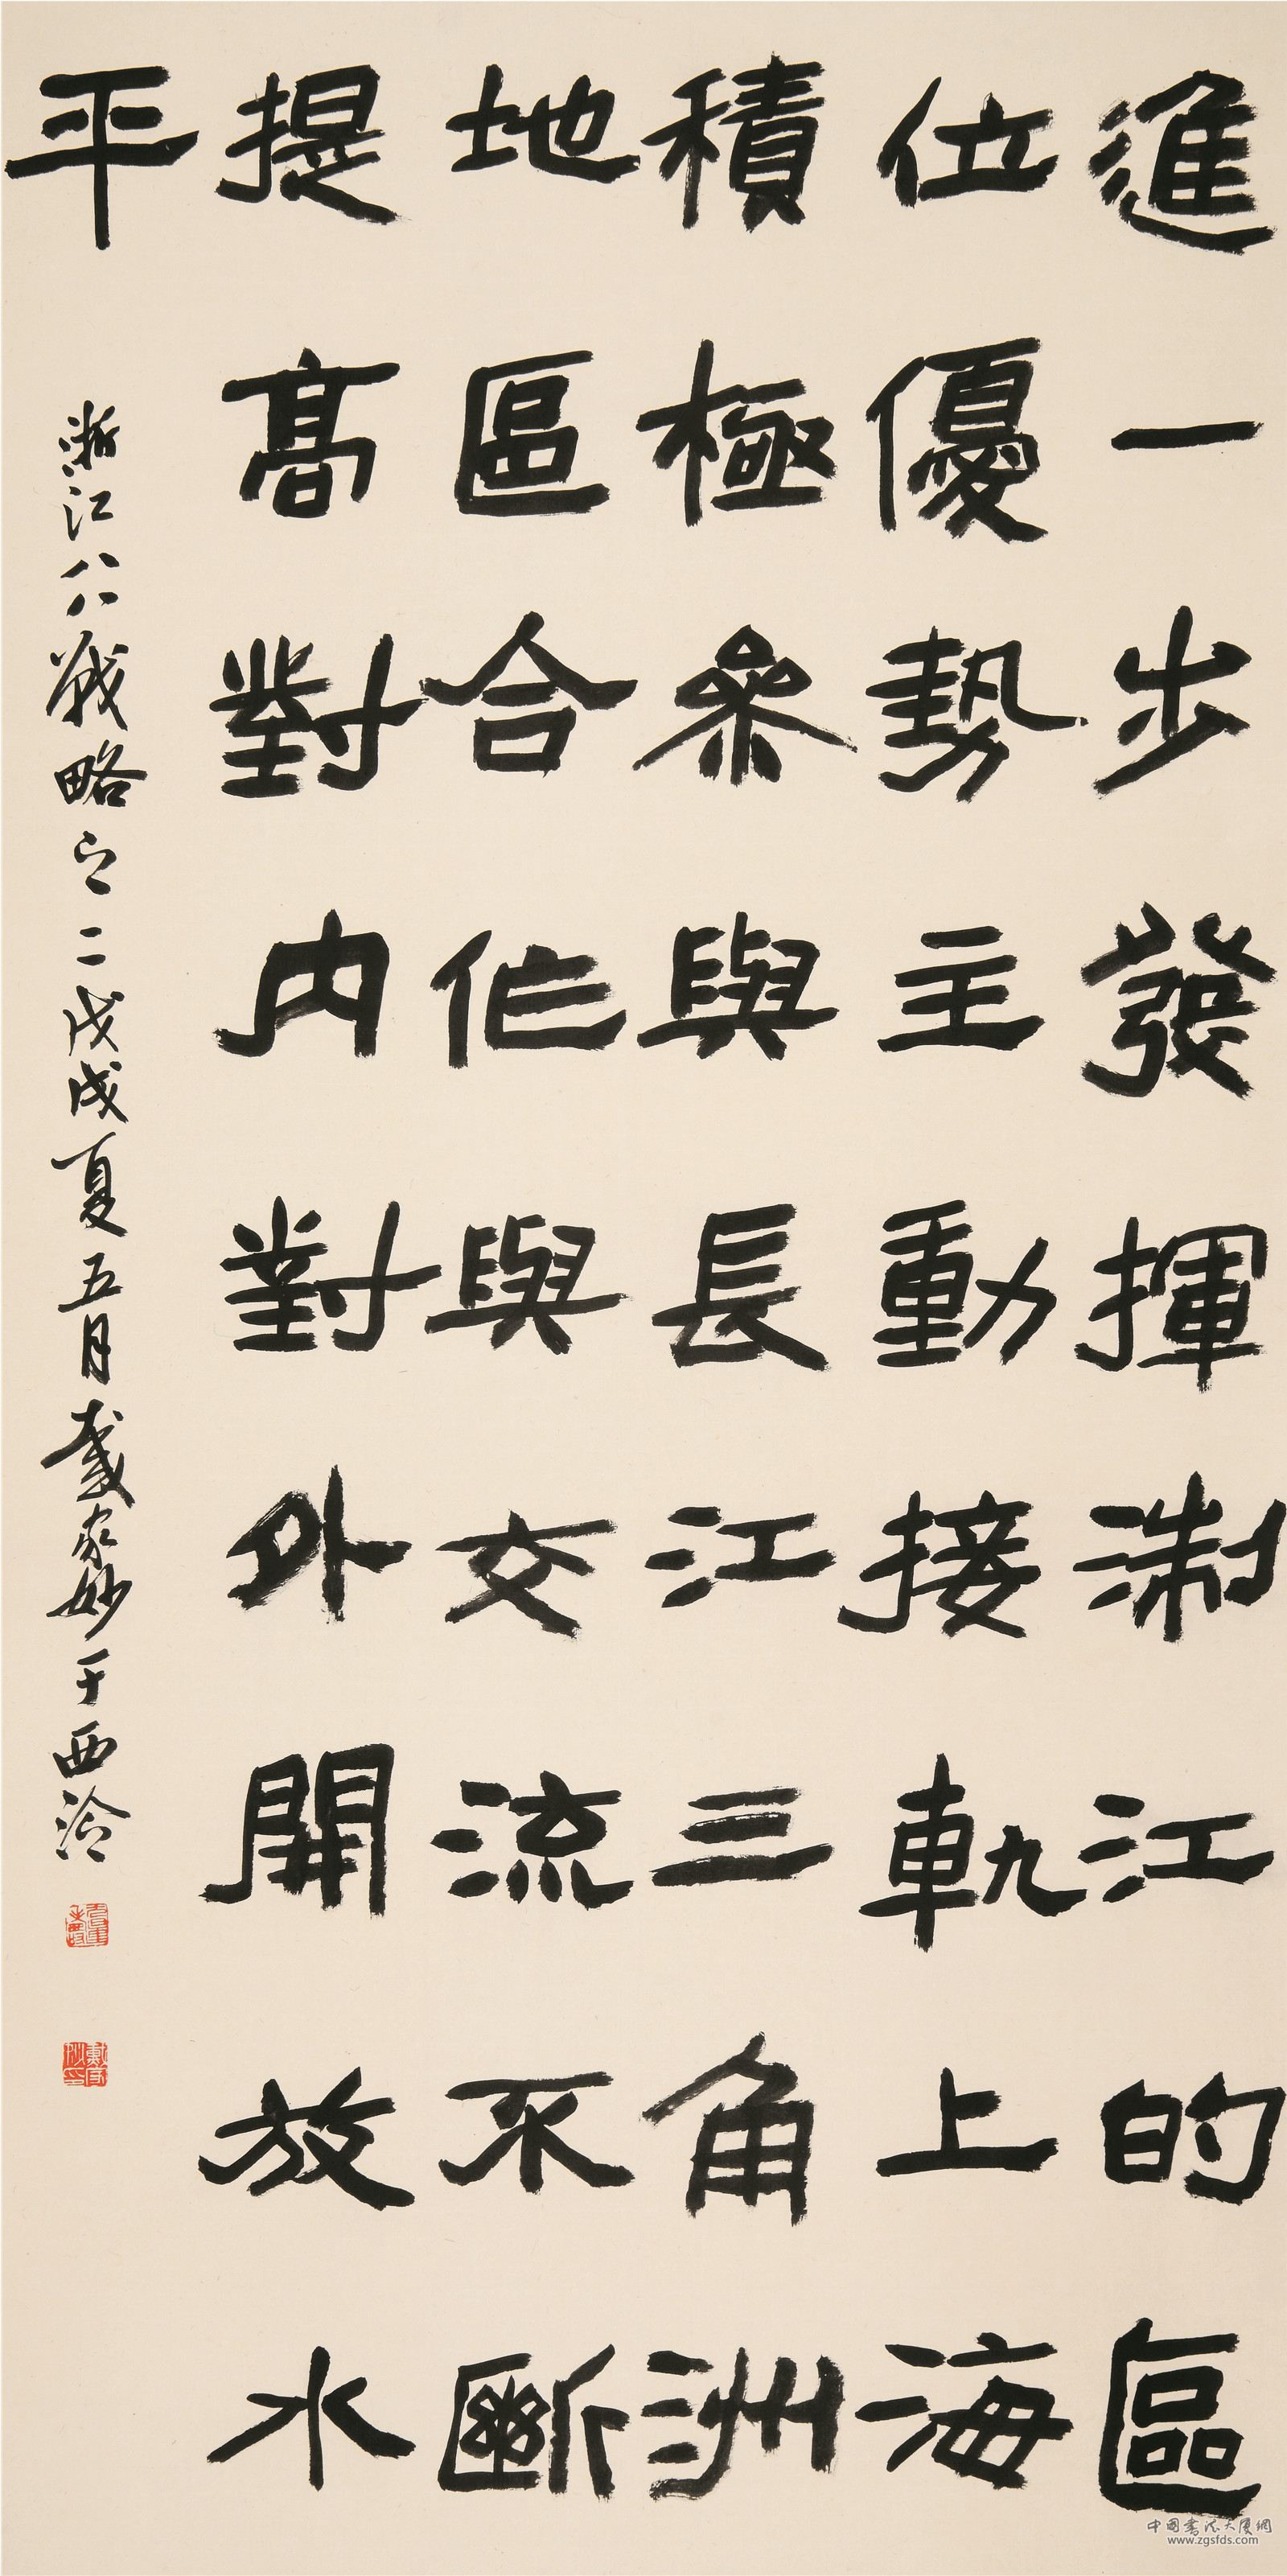 進一步發揮淛江的區
位優勢主動接軌上海
積極參與長江三角洲
地區合作與交流不斷
提高對內對外開放水
平
浙江八八戰略之二戊戌夏五月戴家妙于西泠
中國書法大廈網
www.zgsfds.com